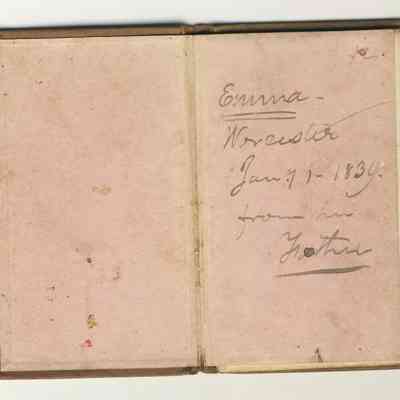 Emma -
Worcester
Jany 1 - 1839.
from her
Father